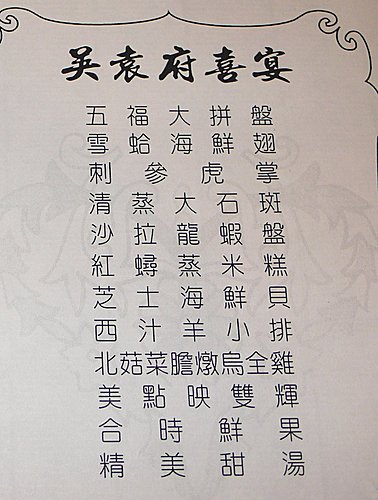 吳袁府喜宴
五福大拼盤
雪蛤海鮮翅
刺參虎掌
清蒸大石斑
沙拉龍蝦盤
紅蟳蒸米糕
芝士海鮮貝
西汁羊小排
北菇菜膽燉烏全雞
美點映雙輝
合時鮮果
精美甜湯